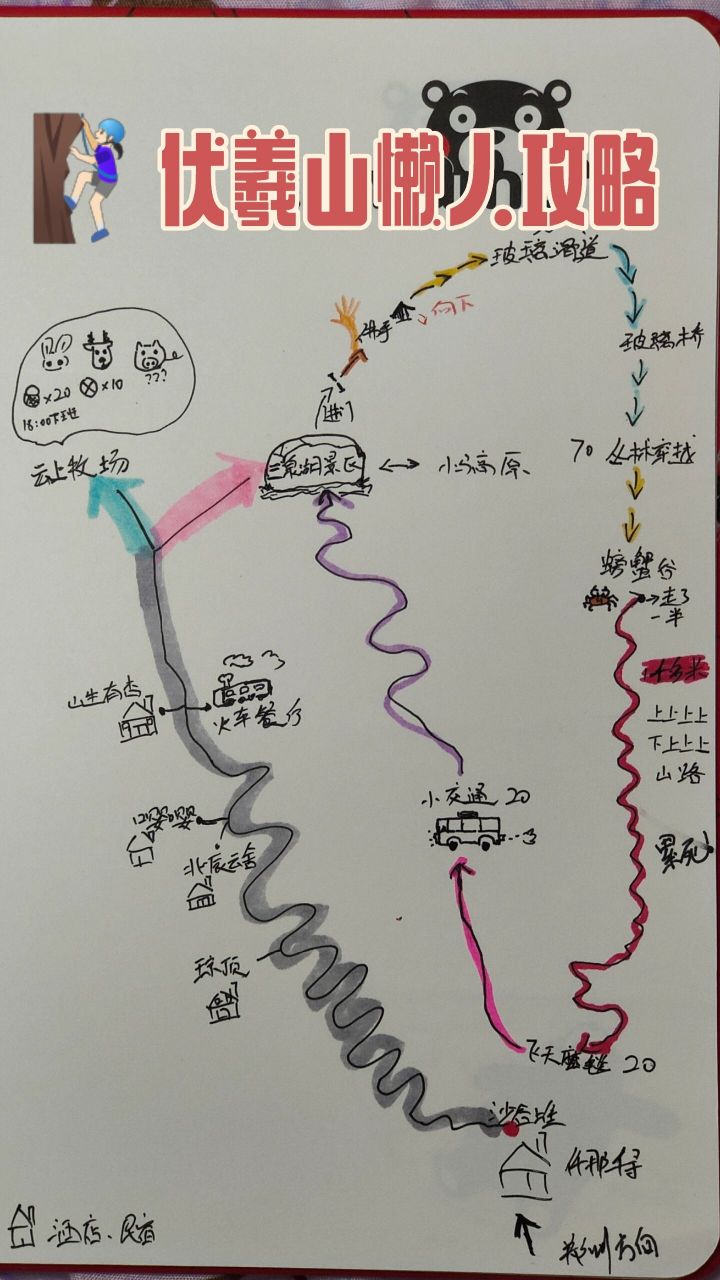 伏羲山懒人攻略
玻璃滑道
佛手
向下
玻璃桥
进门
×20
×10
???
18:00下班
云上牧场
三泉湖景区
小马高原
70 丛林穿越
螃蟹谷
走了
一半
1千多米
上上上上
下上上上
山路
累死
山生有杏
火车餐厅
小交通 20
北辰云舍
琼顶
飞天魔毯 20
什那得
酒店、民宿
郑州方向